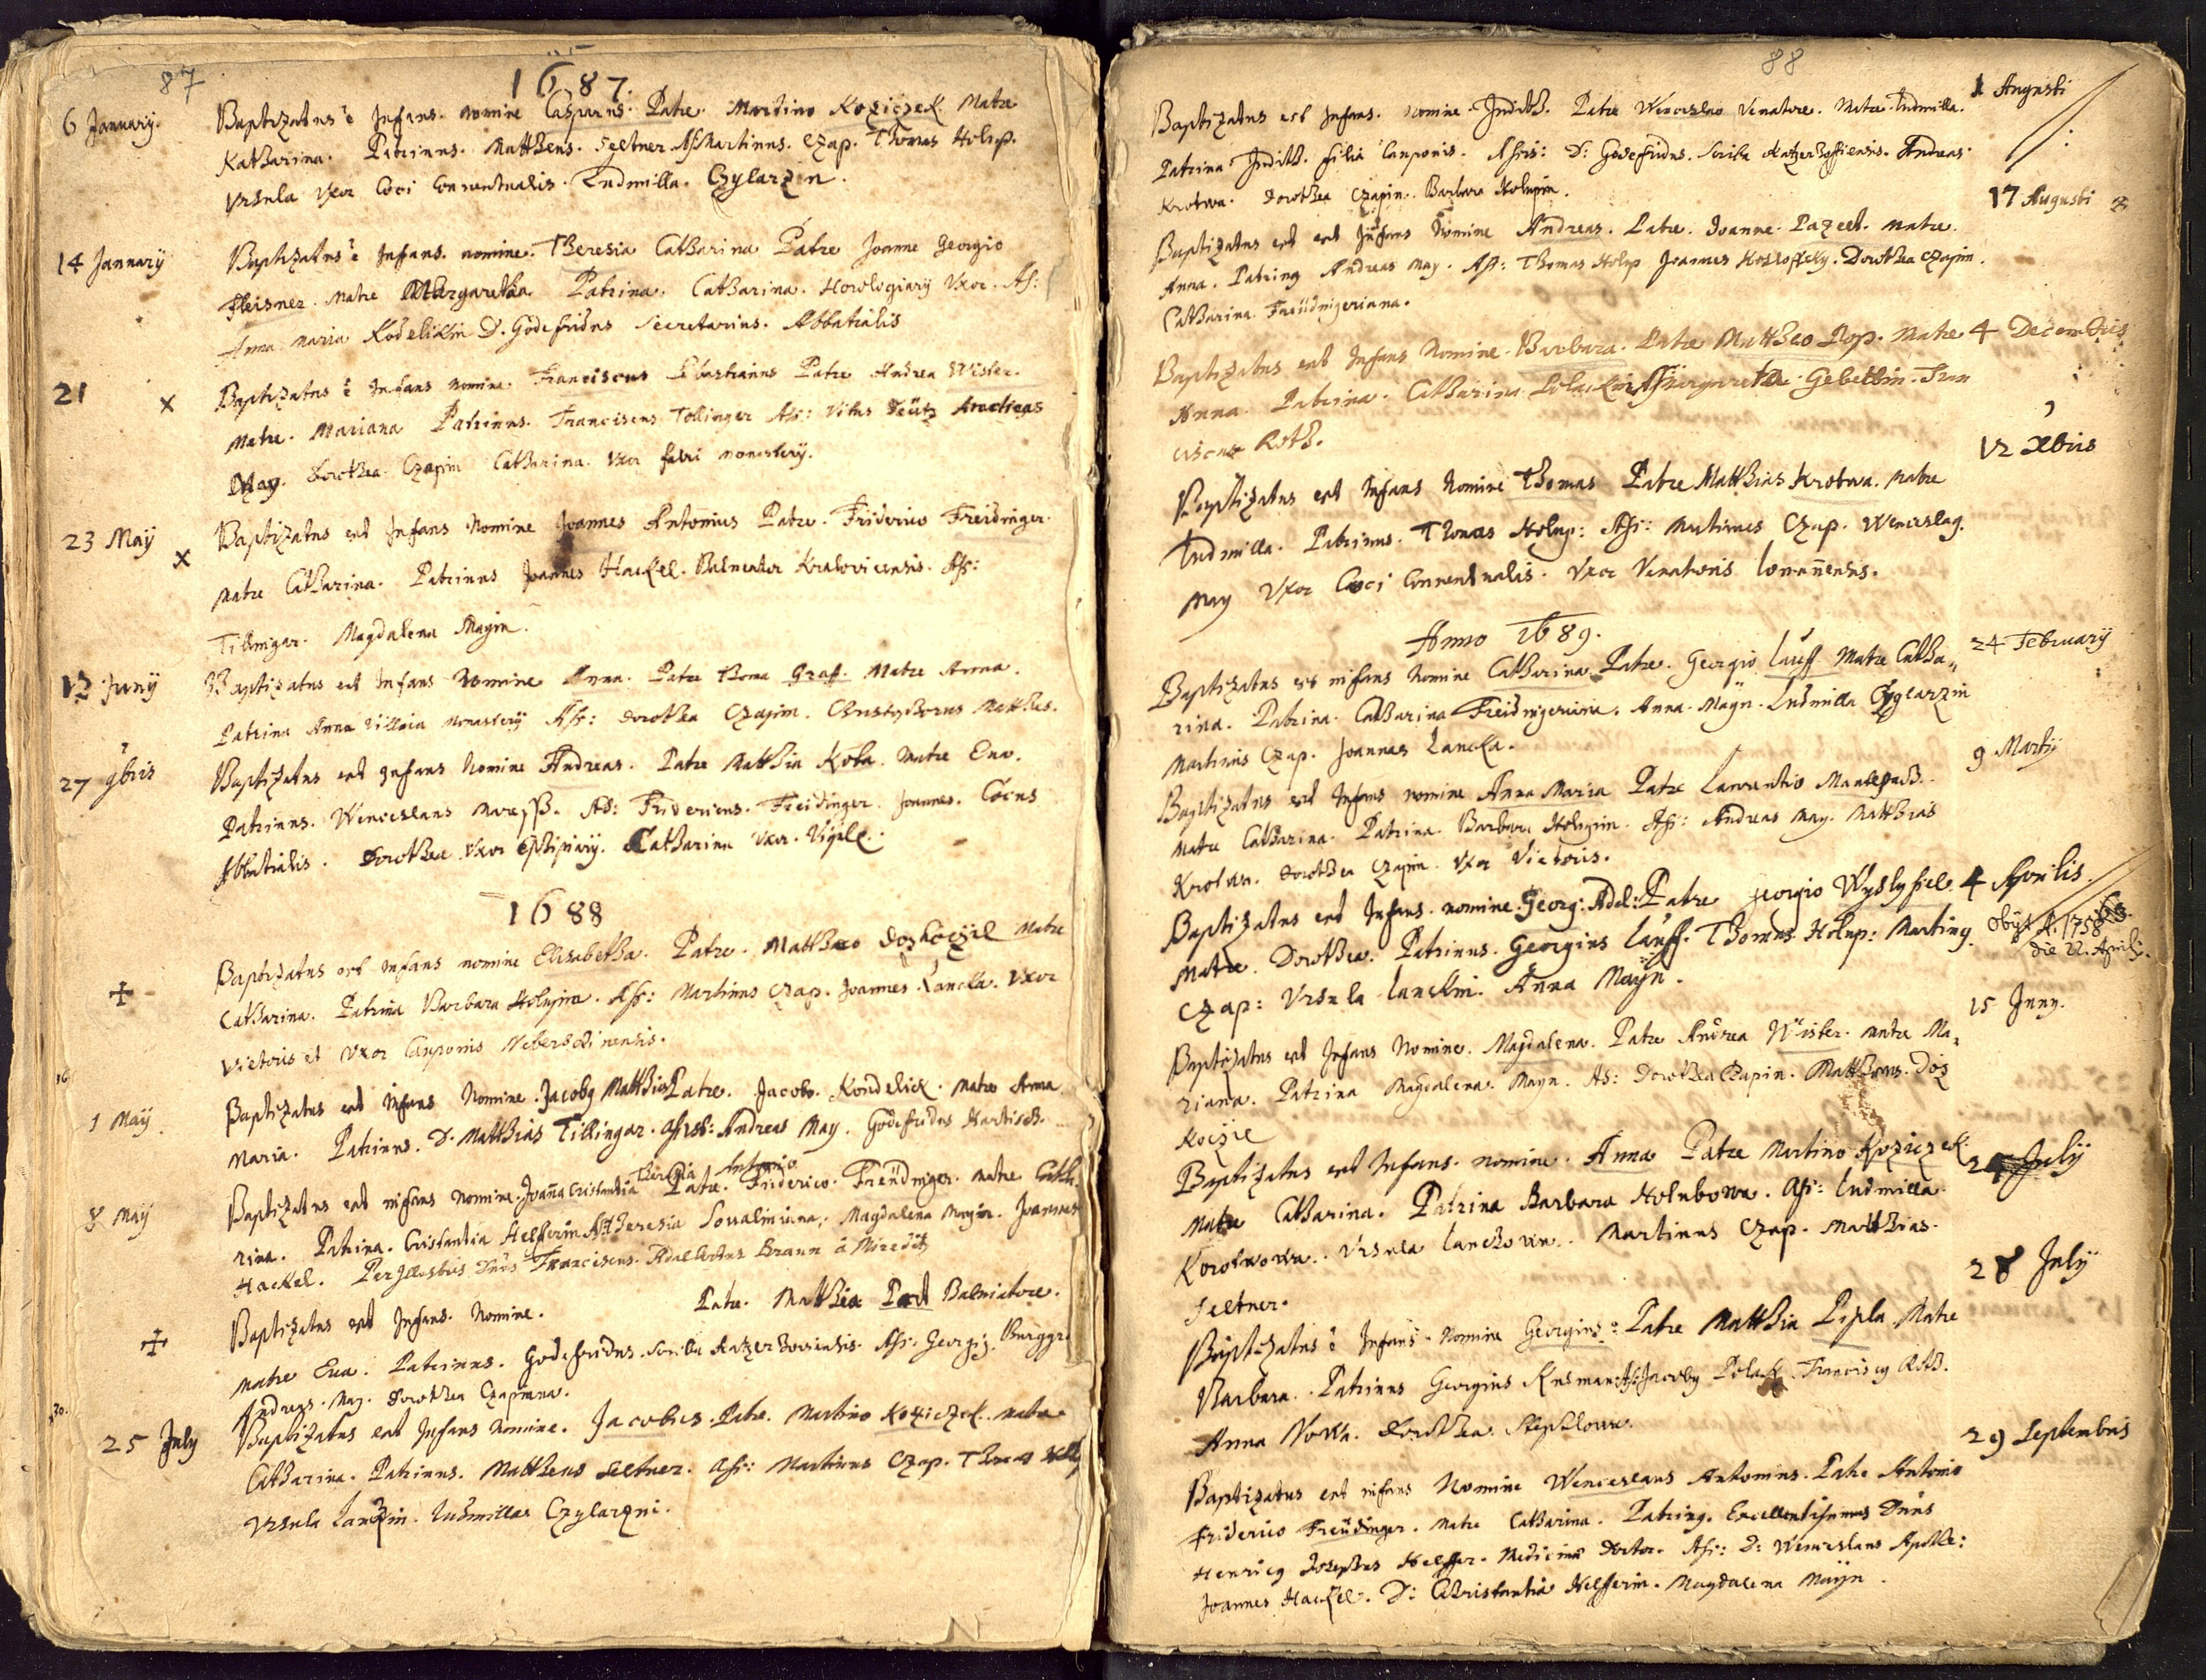 87
1687.
6 January. Baptizatus ē Infans. nomine Casparus. Patre. Martino Koziczek. Matre
Katharina. Patrinus. Matthens. Seltner Aſ: Martinus. Czap. Thomas Holup.
Vrsula Vxor Coci Conventualis. Ludmilla. Czylarzin.
14 January Baptizatus ē Infans. nomine. Theresia Catharina Patre Joanne Georgio
Fleisner. Matre Margaretha Patrina. Catharina. Horologiarij Vxor. Aſ:
Anna Maria Kodelikin D. Godefridus Secretarius. Abbatialis
21 x Baptizatus ē Infans nomine. Franciscus Sebastianus Patre Andrea Wister.
Matre. Mariana Patrinus. Franciscus Tollinger Aſſ: Vitus Teütz Andreas
May. Dorothea. Czapin Catharina. Vxor fabri monasterij.
23 May x Baptizatus est Infans Nomine Joannes Antonius Patre. Friderico Freidinger.
Matre Catharina. Patrinus Joannes Hackel. Balneator Kralovicensis. Aſſ:
Tillingar. Magdalena Mayin.
12 Junij Baptizatus est Infans Nomine Anna. Patre Thoma Graff. Matre Anna.
Patrina Anna Villica Monasterij Aſſ: Dorothea Czapin. Matthes.
27 9bris Baptizatus est Infans Nomine Andreas. Patre Matthia Kota. Matre Eva.
Patrinus. Wenceslaus Aſſ: Fridericus. Freidinger. Joannes. Cocus
Abbatialis. Dorothea Vxor Catharina Vxor. Vigilis.
1688
+ Baptizatus est Infans nomine Elisabetha. Patre. Mattheo Doskoczil Matre
Catharina. Patrina Barbara Holupin. Aſſ: Martinus Czap. Joannes Lancka. Vxor
Vietoris et Vxor Cauponis
16
1 May. Baptizatus est Infans Nomine. Jacobg Matthias Patre. Jacobo. Kondelick. Matre Anna
Maria. Patrinus. D. Matthias Tillingar. Aſſist: Andreas May. Godefridus Hartisch.
8 May Baptizatus est infans Nomine. Joanna Cristantia Theresia Patre. Antonio Friderico. Freüdinger. Matre Catha
rina. Patrina. Cristantia Helfferin Aſ: Theresia Magdalena Mayin. Joannes
Hackel. Perillustris Dnus Franciscus. Adalbertus Braun à Mireditz
+ Baptizatus est Infans. Nomine. Patre. Matthia Balniatore.
Matre Eva. Patrinus. Godefridus. Scriba Katzerhoviensis. Aſſ: Georgig. Burggr
Andreas. May. Dorothea Czapiana.
30.
25 July Baptizatus est Infans Nomine. Jacobus. Patre. Martino Koziczek. Matre
Catharina. Patrinus. Matthens Seltner. Aſſ: Martinus Czap. Thomas
Vrsula Lanczin. Ludmillas Czylarzni.
88
Baptizatus est Infans. Nomine. Judith. Patre Wenceslao Venatore. Matre. Ludmilla. 1 Augusti
Patrina Judith. filia Cauponis. Aſſis: D: Godefridus. Scriba Katzerhoffiensis. Andreas.
Krotwa. Dorothea Czapin. Barbara Holupin.
Baptizatus est Infans Nomine Andreas. Patre. Joanne. Pazeet. Matre. 17 Augusti
Anna. Patring Andreas May. Aſſ: Thomas Holup Joannes Dorothea Czapin.
Catharina. Freüdnigeriana.
Baptizatus est Infans Nomine. Barbara. Patre Mattheo Pop. Matre 4 Decembris
Anna. Patrina. Catharina Polackin Aſ: Margaretha. Gebeltin. Fran
ciscus Roth.
Baptizatus est Infans Nomine Thomas Patre Matthias Krotwa. Matre 12 Xbris
Ludmilla. Patrinus. Thomas Holup: Aſſ: Martinus Czap. Wenceslag.
May Vxor Coci Conventualis. Vxor Venatoris
Anno 1689.
Baptizatus est infans Nomine Catharina Patre. Georgio Lauff Matre Catha„ 24 February
rina. Patrina. Catharina Freidnigeriana. Anna. Mayn. Ludmilla Czyelarzin
Martinus Czap. Joannes Lancka.
Baptizatus est Infans nomine Anna Maria Patre Laurentio 9 Martij
Matre Catharina. Patrina. Barbara Holupin. Aſſ: Andreas May. Matthias
Krotwa. Dorothea Czapin. Vxor Vietoris.
Baptizatus est Infans. nomine. Georg: Adal: Patre Georgio 4 Aprilis.
Matre. Dorothea. Patrinus. Georgius Lauff. Thomas Holup: Marting. obijt A. 1758
Czap: Vrsula Lanckin. Anna Mayn. die 22. Aprilis.
Baptizatus est Infans Nomine. Magdalena. Patre Andrea Wister. Matre Ma- 15 Juny.
riana. Patrina Magdalena. Mayn. Aſ: Dorothea Czapin. Mattheus. Dos
koczil
Baptizatus est Infans. nomine. Anna Patre Martino Koziczek. 24 July
Matre Catharina. Patrina Barbara Holubowa. Aſſ: Ludmilla.
Korotwowa. Vrsula Lanckowa. Martinus Czap. Matthias.
Seltner.
Baptizatus ē Infans. Nomine Georgius: Patre Matthia Pipla Matre 28 July
Barbara. Patrinus Georgius Aſ: Jacobg Polack Franciscg Roth.
Anna Dorothea
Baptizatus est infans Nomine Wenceslaus Antonius. Patre Antonio 29 Septembris
Friderico Freüdinger. Matre Catharina. Patring. Excellentiſsimus Dnus
Henricg Josephus Helffer. Medicinæ Doctor. Aſſ: D: Wenceslaus Apothe:
Joannes Hackel. D: Christantia Helfferin. Magdalena Mayn.